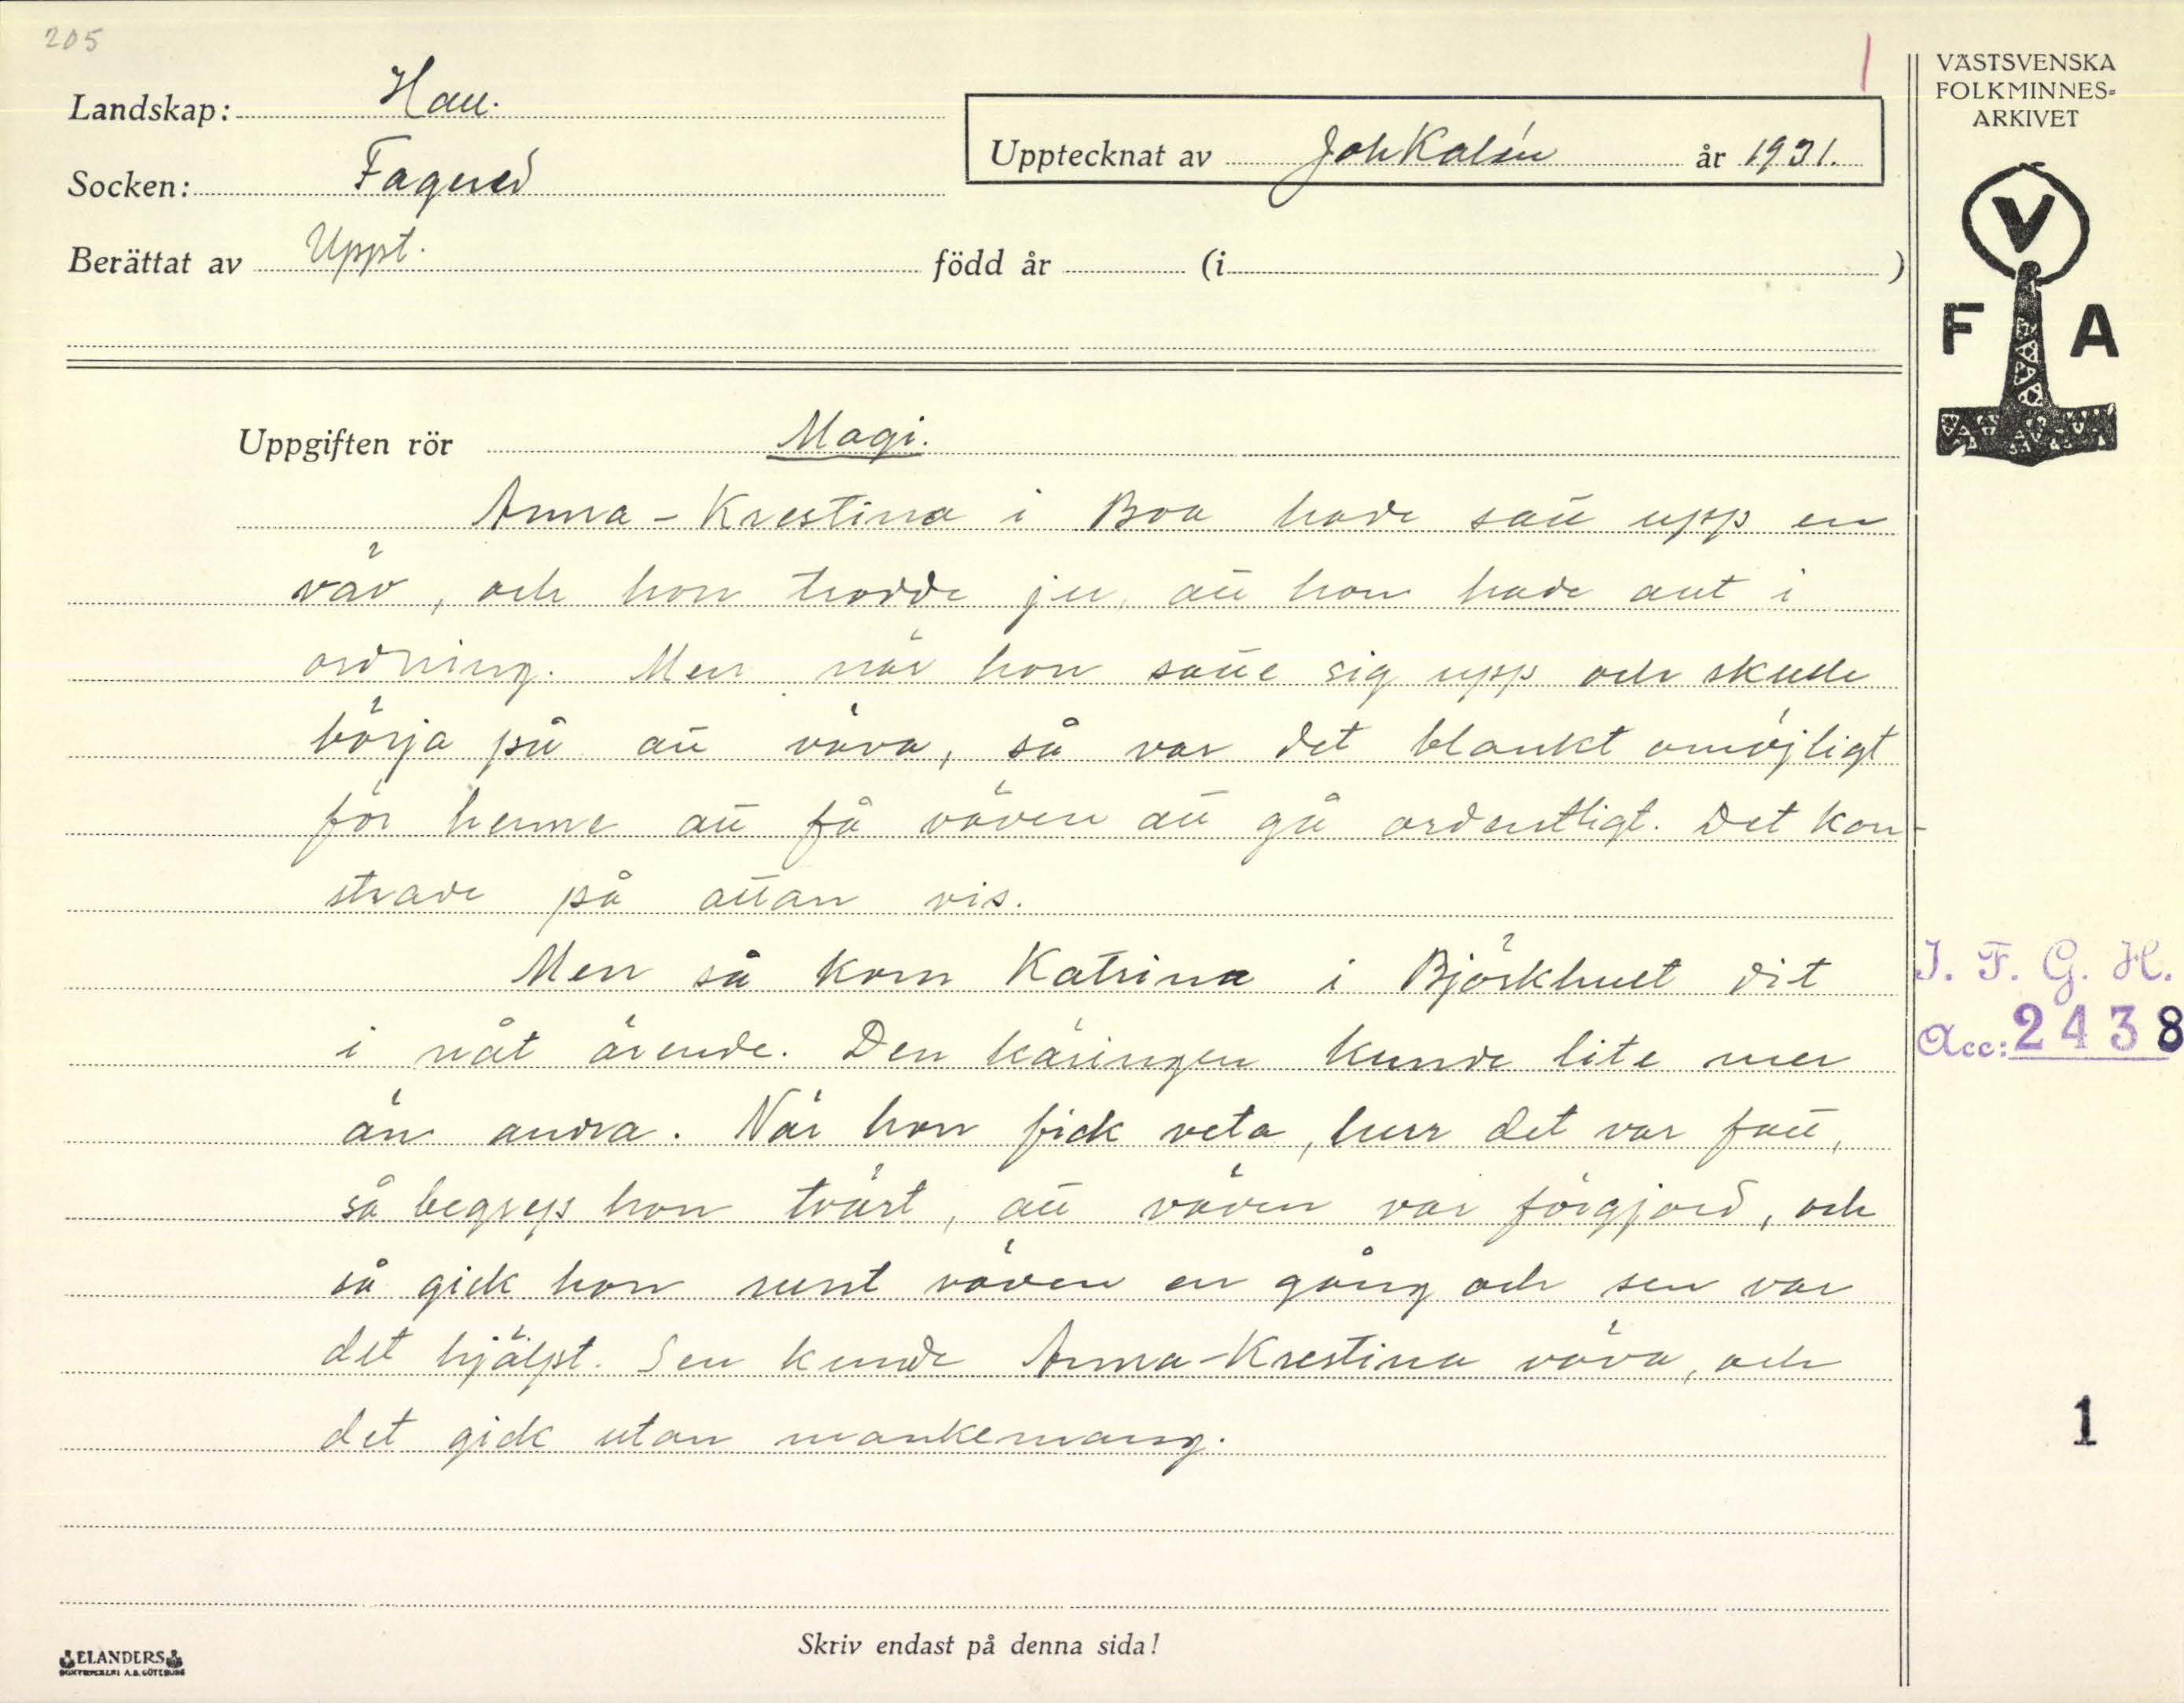 205
Landskap: Hall.
Socken: Fagered
Berättat av Uppt. född år (i )
Upptecknat av Joh Kalén år 1931.
VÄSTSVENSKA
FOLKMINNES-
ARKIVET
V
F A
Uppgiften rör Magi.
Anna-Krestina i Boa hade satt upp en
väv, och hon trodde ju, att hon hade allt i
ordning. Men när hon satte sig upp och skulle
börja på att väva, så var det blankt omöjligt
för henne att få väven att gå ordentligt. Det kon-
strade på attan vis.
Men så kom Katrina i Björkhult dit
i nåt ärende. Den käringen kunde lite mer
än andra. När hon fick veta, hur det var fatt,
så begrep hon tvärt, att väven var förgjord, och
så gick hon runt väven en gång och sen var
det hjälpt. Sen kunde Anna-Krestina väva, och
det gick utan mankemang.
I. F. G. H.
Acc: 2438
1
Skriv endast på denna sida!
ELANDERS
BOKTRYCKERI A.B. GÖTEBORG